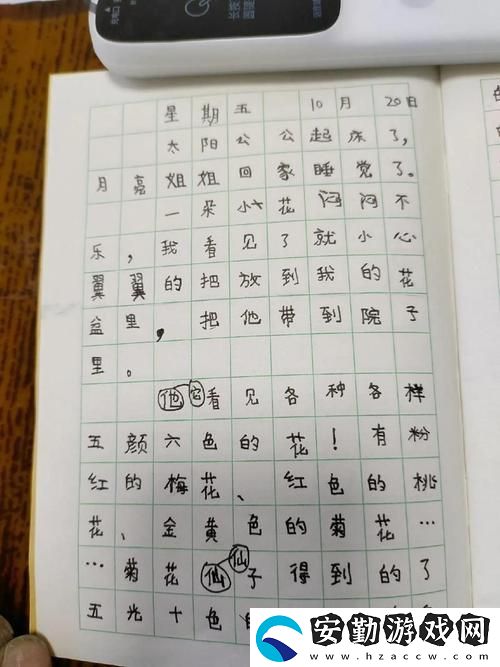 长按
星期五 10月 20日
太阳公公起床了,
月亮姐姐回家睡觉了。
一朵小花闷闷不
乐,我看见了就小心
翼翼的把放到我的花
盆里,把他带到院子
里。
他它看见各种各样
五颜六色的花!有粉
红的梅花、红色的桃
花、金黄色的菊花…
…菊花仙仙子得到的了
五光十色
安勤游戏网
www.hzaccw.com